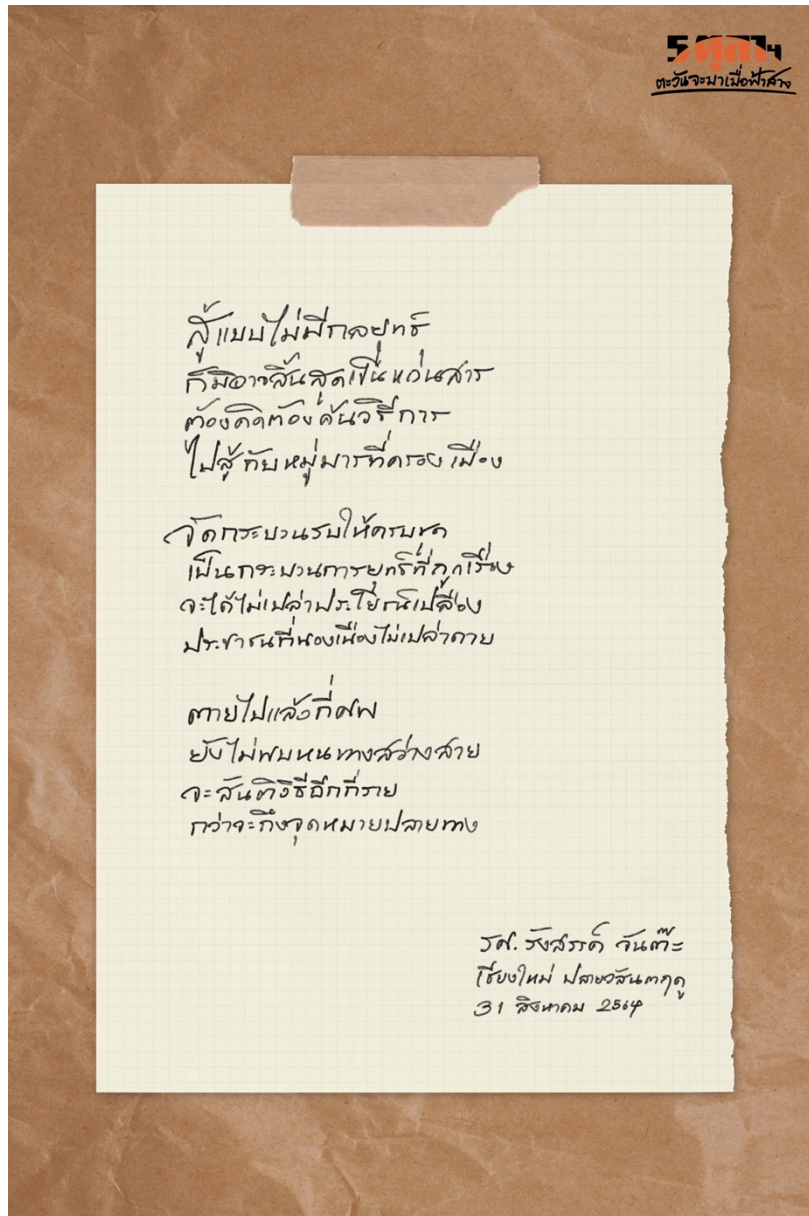 5 ตุลา 4
ตะวันจะมาเมื่อฟ้าสาง
สู้แบบไม่มีกลยุทธ์
ก็มิอาจสิ้นสุดเป็นหว่นสาร
ต้องคิดต้องค้นวิธีการ
ไปสู้กับหมู่มารที่ครองเมือง
จัดกระบวนรบให้ครบชุด
เป็นกระบวนการยุทธ์ที่ถูกเรื่อง
จะได้ไม่เปล่าประโยชน์เปลือง
ประชาชนที่นองเนืองไม่เปล่าดาย
ตายไปแล้วกี่ศพ
ยังไม่พบหนทางสว่างสาย
จะสันติวิธีอีกกี่ราย
กว่าจะถึงจุดหมายปลายทาง
รศ. รังสรรค์ จันต๊ะ
เชียงใหม่ ปลายวสันตฤดู
31 สิงหาคม 2564